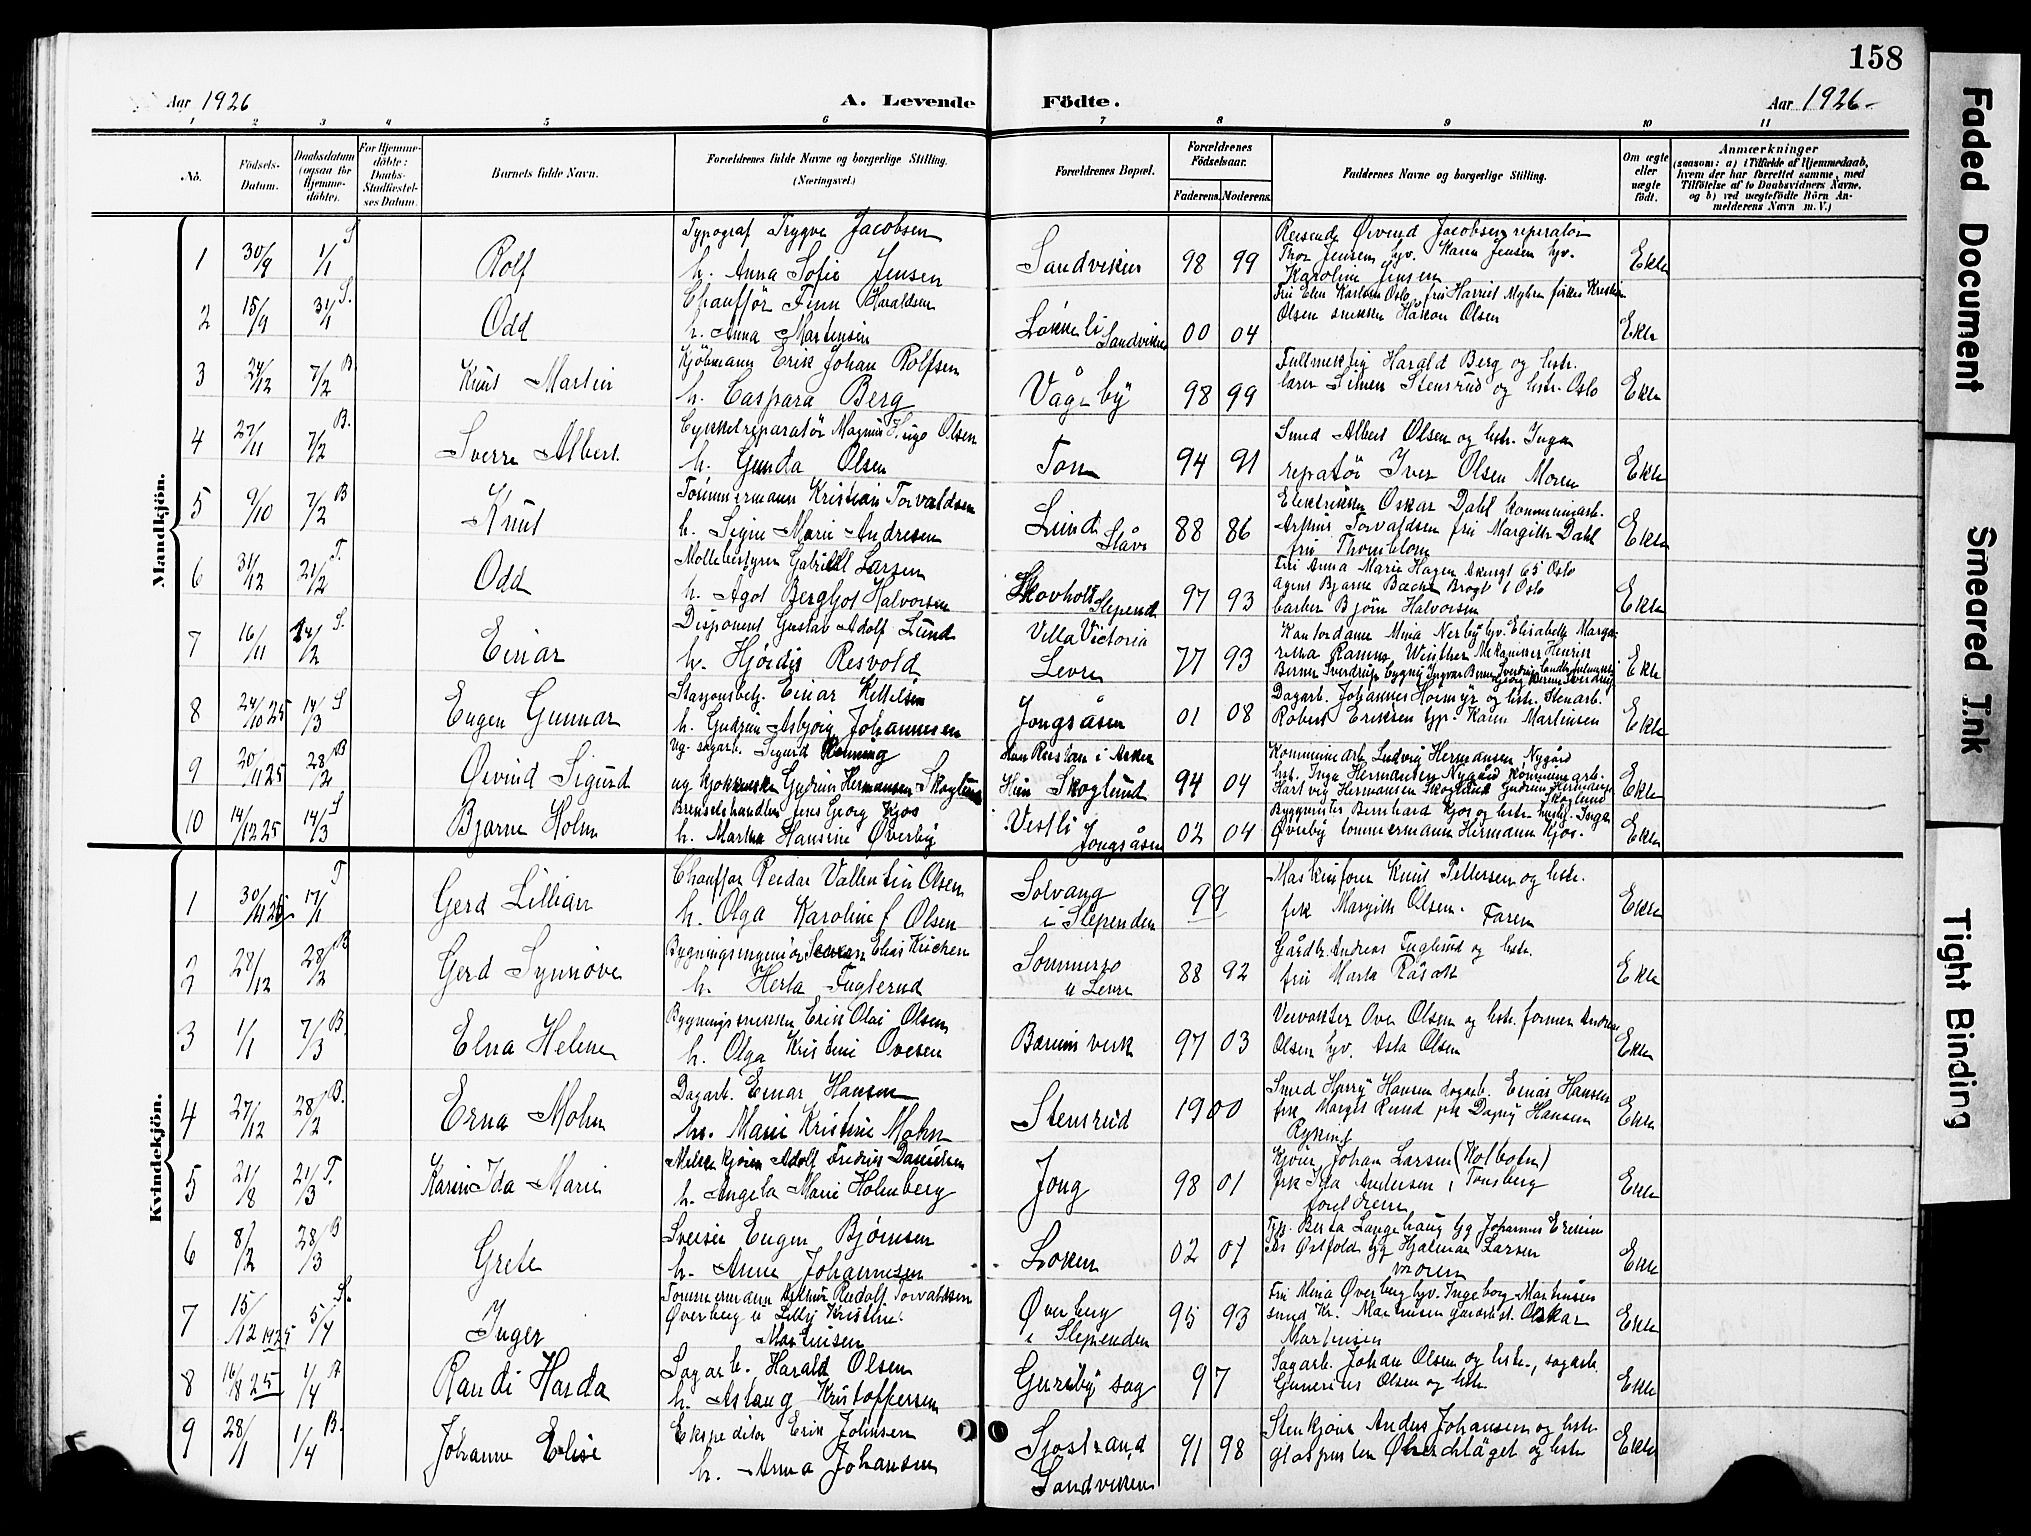 158
Aar 1926
A. Levende
Födte.
Aar 1926-
1 2 3 4 5 6 7 8 9 10 11
No.
Födsels-
Datum.
Daabsdatum
(ogsaa for
Hjemme-
döbte).
For Hjemme-
döbte:
Daabs-
Stadfæstel-
ses Datum.
Barnets fulde Navn.
Forældrenes fulde Navne og borgerlige Stilling.
(Næringsvei.)
Forældrenes Bopæl.
Forældrenes
Födselsaar.
Faderens. Moderens.
Faddernes Navne og borgerlige Stilling.
Om ægte
eller
uægte
födt.
Anmærkninger
(saasom: a) i Tilfælde af Hjemmedaab,
hvem der har forrettet samme, med
Tilföielse af to Daabsvidners Navne,
og b) ved uægtefödte Börn An-
melderens Navn m. V.)
Mandkjön.
1 30/9 1/1 S Rolf
Typograf Trygve Jacobsen
h. Anna Sofie Jensen
Sandviken 98 99
Reisende Øivind Jacobsen reperatör
Thor Jensen hv. Karen Jensen hv.
Karoline Jensen
Ekte
2 15/9 31/1 S. Odd
Chaufför Finn Haraldsen
h. Anna Martensen
Løkkeli Sandviken 00 04
Olsen snekker Håkon Olsen
Ekte
3 24/12 7/2 B Knut Martin
Kjöbmann Erik Johan Rolfsen
h. Caspara Berg
Vågeby 98 99
Fullmektig Harald Berg og hstr.
lærer Simen Stensrud og hstr. Oslo
Ekte
4 27/11 7/2 B. Sverre Albert
Cykkelreparatör Magnus Hugo Olsen
h. Gunda Olsen
Ton 94 91
Smed Albert Olsen og hstr. Inga
repatör Iver Olsen Moren
Ekte
5 9/10 7/2 B Knut
Tömmermann Kristian Torvaldsen
h. Signe Marie Andresen
Lund 88 86
Elektriker Oskar Dahl kommunearb.
Arthur Torvaldsen fru Margith Dahl
fru Thornblom
Ekte
6 31/12 21/2 T. Odd
Möllebestyrer Gabriell Larsen
h. Agot Bergljot Halvorsen
Skovholt Slepend 97 93
Fru Anna Marie Hagen Akersgt 65 Oslo
agent Bjarne Bache Brogt 1 Oslo
barber Björn Halvorsen
Ekte
7 16/11 14/2 S. Einar
Disponent Gustav Adolf Lund
h. Hjördis Resvold
Villa Victoria
Levre 77 93
Ekte
8 24/10 25 14/3 S Eugen Gunnar
Stasjonsbetj. Einar Kittelsen
h. Gudrun Asbjørg Johannesen
Jongsåsen 01 08
Dagarb. Johannes Hoemyr og hstr. Stenarb.
Robert Eriksen hv. Karen Martensen
Ekte
9 20/11 25 28/2 B Øivind Sigurd
Ug. sagarb. Sigurd Rønning
ug kjøkkenske Gudrun Hermansen Skoglund
Han Reistan i Asker
Hun Skoglund 94 04
Kommunearb Ludvig Hermansen, Nygård
hst. Inga Hermansen Nygård kommunearb.
Hartvig Hermansen Skoglund Gudrun Hermansen
Skoglund
Ekte
10 14/12 25 14/3 S Bjarne Holm
Brenselshandler Jens Georg Kjos
h. Martha Hansine Øverby
Vestli
Jongsåsen 02 04
Byggmester Bernhard Kjos og hstr. hushj. Inger
Øverby tømmermann Hermann Kjos.
Ekte
Kvindekjön.
1 30/11 25 17/1 T Gerd Lillian
Chauffør Reidar Vallentin Olsen
h. Olga Karoline f Olsen
Solvang
i Slependen 99
Maskinfører Knut Pettersen og hstr.
frk Margith Olsen. Faren
Ekte
2 28/12 28/2 B Gerd Synnöve
Bygningsingeniør Elias Kirchen
h. Herta Fuglerud
Sommerro
u Levre 88 92
Gårdbr. Andreas Fuglerud og hstr.
fru Marta Råsok
Ekte
3 1/1 7/3 B. Elna Helene
Bygningssnekker Erik Olai Olsen
h. Olga Kristine Ovesen
Bærums verk 97 03
Veivokter Ove Olsen og hstr. former Andreas
Olsen hv. Asta Olsen
Ekte
4 27/12 28/2 B. Erna Mohn
Dagarb. Einar Hansen
h. Marie Kristine Mohn
Stensrud 1900
Smed Harry Hansen dagarb. Einar Hansen
frk Margit Ruud frk Dagny Hansen
Rykin
Ekte
5 21/8 21/3 T. Karin Ida Marie
Melkekjører Adolf Fredrik Danielsen
h. Angela Marie Holmberg
Jong 98 01
Kjører Johan Larsen (Kolbotn)
frk Ida Andersen i Tønsberg
foreldrene
Ekte
6 8/2 28/3 B Grete
Sveiser Eugen Bjørnsen
h. Anna Johannesen
Løken 02 07
Tjp. Berta Langehaug Gg Johannes Eriksen
Østfold Gg Hjalmar Larsen
moren
Ekte
7 15/12 1925 5/4 S. Inger
Tømmermann Arthur Rudolf Torvaldsen
Øverberg u Lilly Kristine
Martinsen
Øverberg
i Slependen 95 93
Fru Mina Øverberg hv. Ingeborg Martinsen
smed Kr. Martinsen gårdbest. Oskar
Martinsen
Ekte
8 16/8 25 1/4 B Randi Harda
Sagarb. Harald Olsen
h. Aslaug Kristoffersen
Guriby sag 97
Sagarb. Johan Olsen og hstr., sagarb.
Gunerius Olsen og hstr
Ekte
9 28/1 1/4 B. Johanne Elise
Ekspeditør Erik Johnsen
h. Anna Johansen
Sjøstrand
Sandviken 91 98
Stenkjører Anders Johansen og hstr
og hstr
Ekte
Faded Document
Smeared Ink
Tight Binding